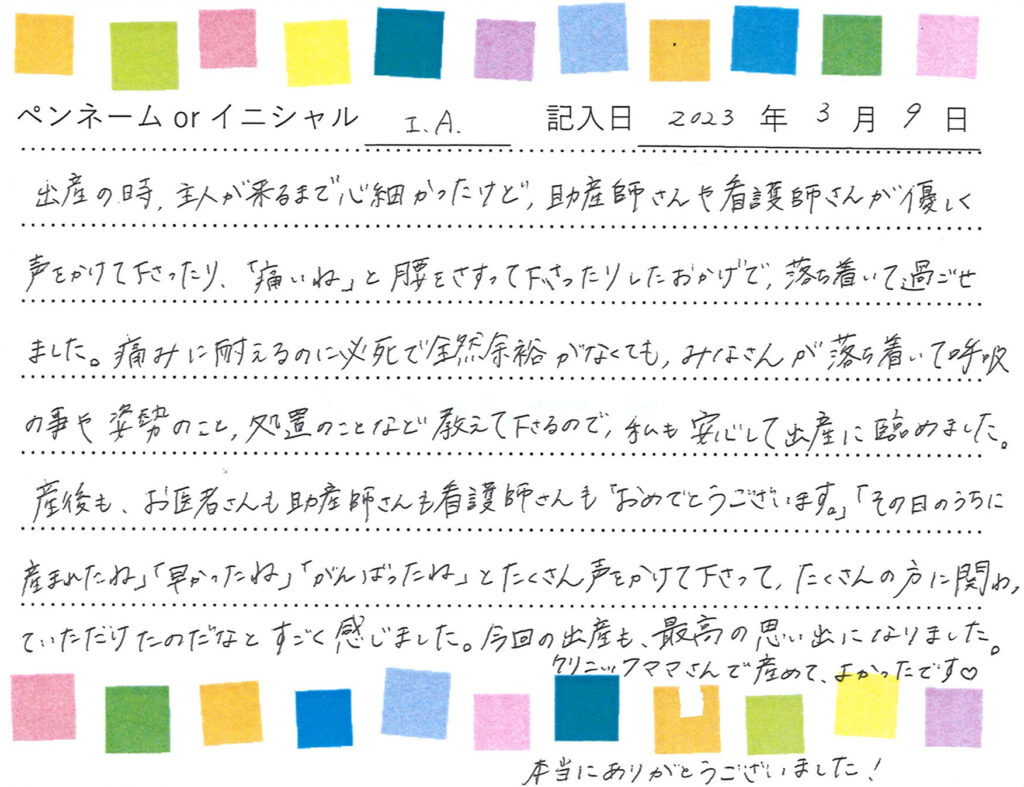 ペンネーム or イニシャル I.A. 記入日 2023 年 3 月 9 日
出産の時、主人が来るまで心細かったけど、助産師さんや看護師さんが優しく
声をかけて下さったり、「痛いね」と腰をさすって下さったりしたおかげで、落ち着いて過ごせ
ました。痛みに耐えるのに必死で全然余裕がなくても、みなさんが落ち着いて呼吸
の事や姿勢のこと、処置のことなど教えて下さるので、私も安心して出産に臨めました。
産後も、お医者さんも助産師さんも看護師さんも「おめでとうございます。」「その日のうちに
産まれたね」「早かったね」「がんばったね」とたくさん声をかけて下さって、たくさんの方に関わっ
ていただけたのだなとすごく感じました。今回の出産も、最高の思い出になりました。
クリニックママさんで産めて、よかったです♡
本当にありがとうございました！